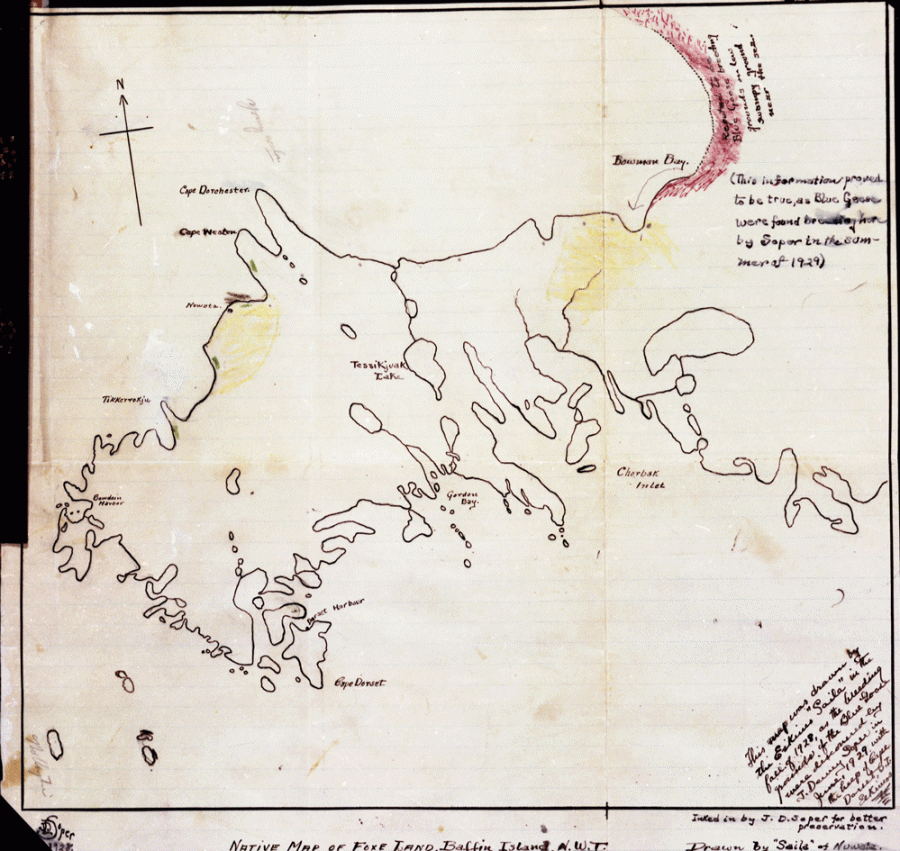 N
Cape Dorchester.
Cape Weston.
Nowata.
Tikkerrakju
Bowdoin
Harbor
Tessikjuak
Lake
Gordon
Bay.
Chorbak
Inlet
Dorset Harbour
Cape Dorset.
Bowman Bay.
Reported to be
Blue Goose
grounds in low
swampy ground
near the sea.
(This information proved
to be true, as Blue Geese
were found breeding here
by Soper in the sum-
mer of 1929)
This map was drawn by
the Eskimo "Saila" in the
fall of 1928, as the breeding
grounds of the Blue Goose
were discovered by
J. Dewey Soper in
June 1929, with
the help of Cape
Dorset
Eskimos
Inked in by J. D. Soper for better
preservation.
JDSoper
1928
Native Map of Foxe Land, Baffin Island, N.W.T.
Drawn By "Saila" of Nuwata.